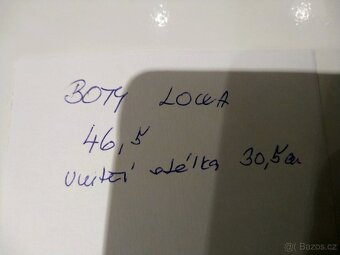 BOTY LOWA
46,5
vnitřní stélka 30,5cm
© Bazos.cz